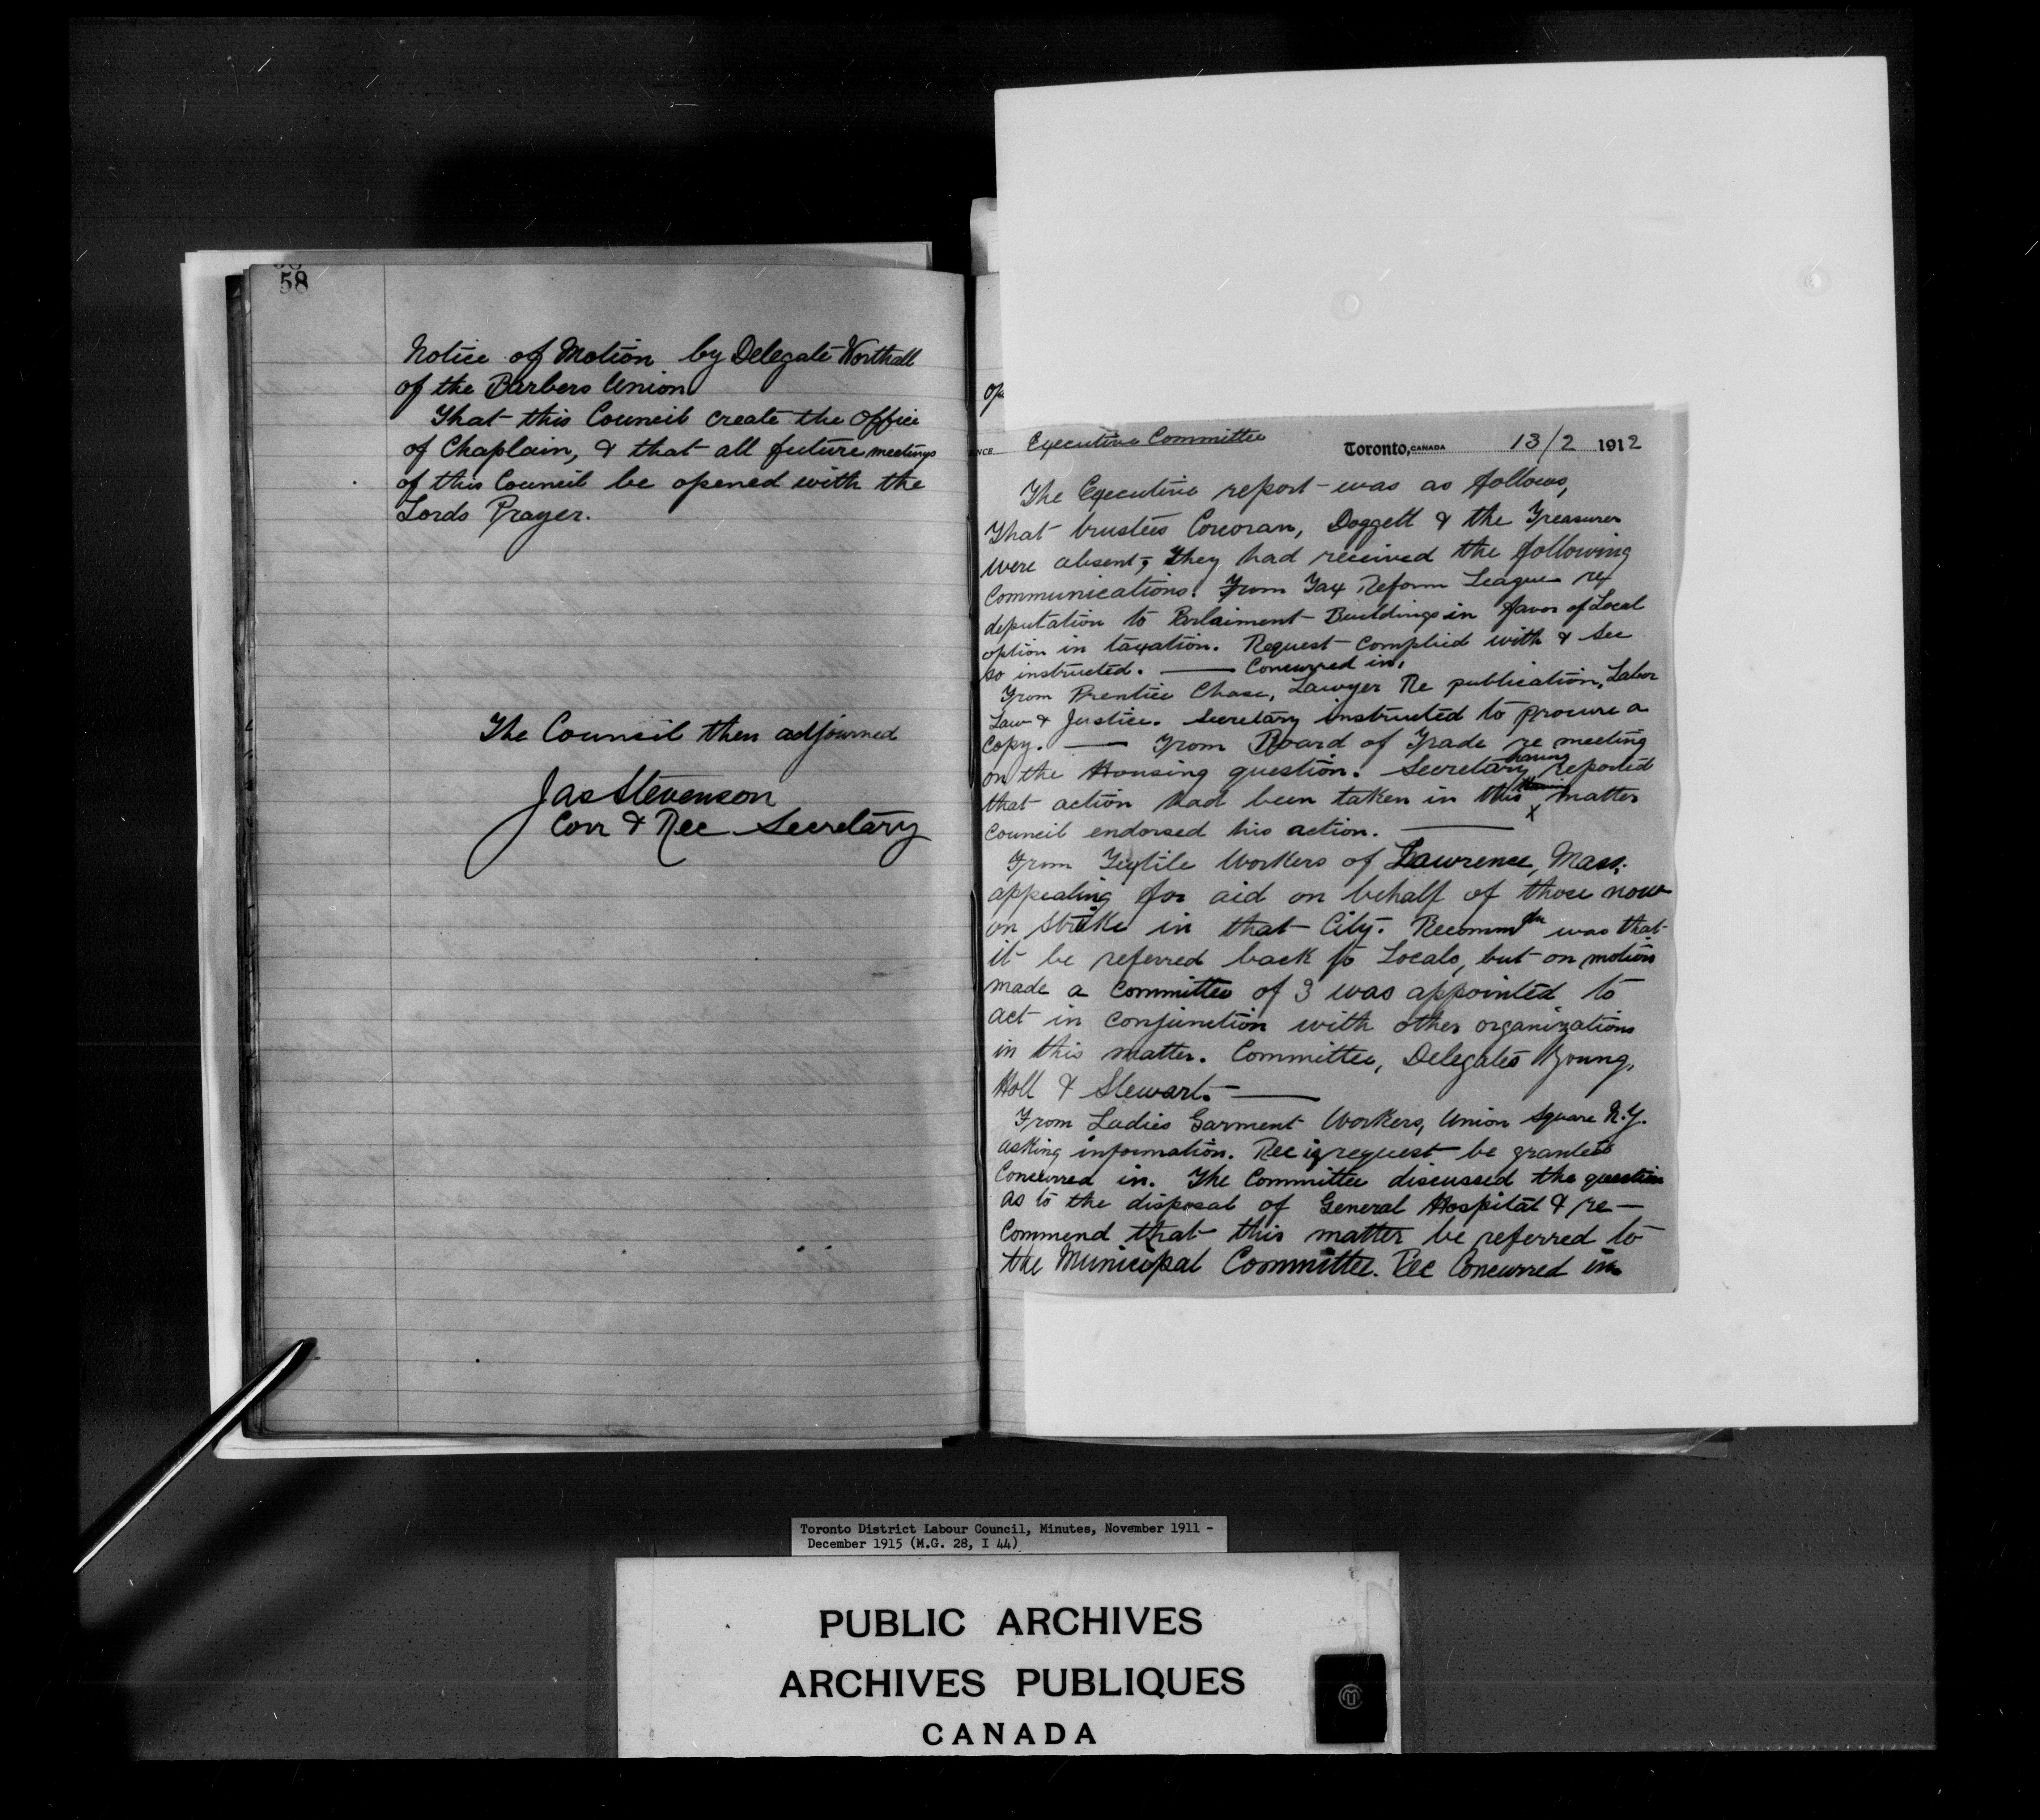 58
Notice of Motion by Delegate Worthall
of the Barbers Union
That this Council create the office
of Chaplain, & that all future meetings
of this Council be opened with the
Lords Prayer.
The Council then adjourned
Jas Stevenson
Corr & Rec Secretary
Executive Committee Toronto, CANADA 13/2 1912
The Executive report was as follows,
That trustees Corcoran, Doggett & the Treasurer
were absent; they had received the following
Communications. From Tax Reform League re
deputation to Parlaiment Buildings in favor of Local
option in taxation. Request complied with & Sec
so instructed. — Concurred in.
From Prentice Chase, Lawyer Re publication, Labor
Law & Justice. Secretary instructed to procure a
Copy. — From Board of Trade re meeting
on the Housing question. Secretary having reported
that action had been taken in this matter
Council endorsed his action. —
From Textile Workers of Lawrence, Mass.
appealing for aid on behalf of those now
on strike in that City. Recommdn was that
it be referred back to Locals, but on motion
made a Committee of 3 was appointed to
act in conjunction with other organizations
in this matter. Committee, Delegates Young,
Holt & Stewart. —
From Ladies Garment Workers, Union Square N.Y.
asking information. Rec is request be granted
Concurred in. The Committee discussed the question
as to the disposal of General Hospital & re-
commend that this matter be referred to
the Municipal Committee. Rec Concurred in
Toronto District Labour Council, Minutes, November 1911 -
December 1915 (M.G. 28, I 44)
PUBLIC ARCHIVES
ARCHIVES PUBLIQUES
CANADA